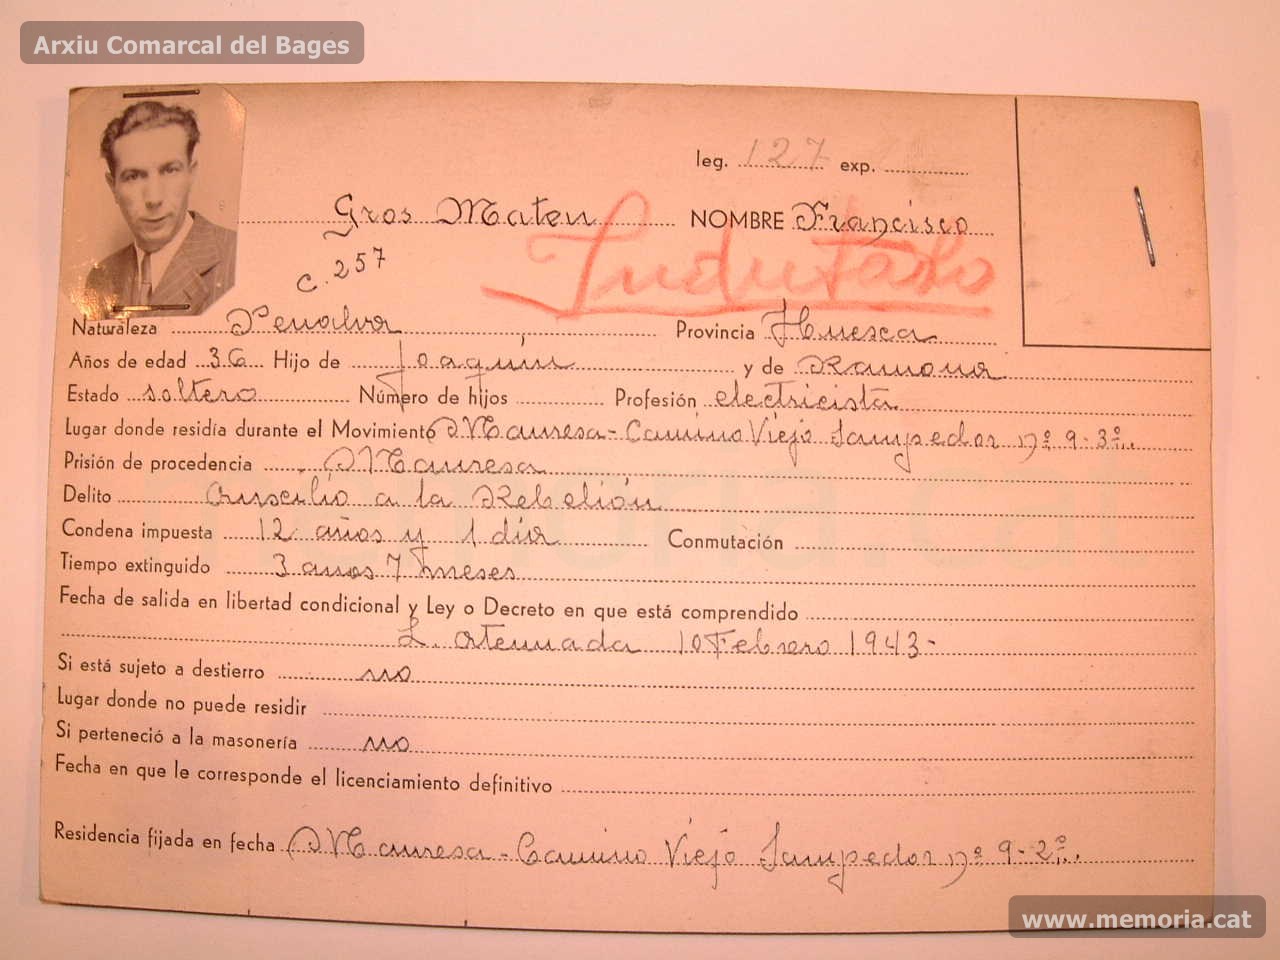 Arxiu Comarcal del Bages
leg. 127 exp.
Gros Mateu NOMBRE Francisco
Indultado
c. 257
Naturaleza Penalva Provincia Huesca
Años de edad 36 Hijo de Joaquín y de Ramona
Estado soltero Número de hijos Profesión electricista
Lugar donde residía durante el Movimiento Manresa - Camino Viejo Sampedor nº 9-3º
Prisión de procedencia Manresa
Delito Auscilio a la Rebelión
Condena impuesta 12 años y 1 día Conmutación
Tiempo extinguido 3 anos 7 meses
Fecha de salida en libertad condicional y Ley o Decreto en que está comprendido
L. atenuada 10 Febrero 1943-
Si está sujeto a destierro no
Lugar donde no puede residir
Si perteneció a la masonería no
Fecha en que le corresponde el licenciamiento definitivo
Residencia fijada en fecha Manresa - Camino Viejo Sampedor nº 9-2º
memoria.cat
www.memoria.cat